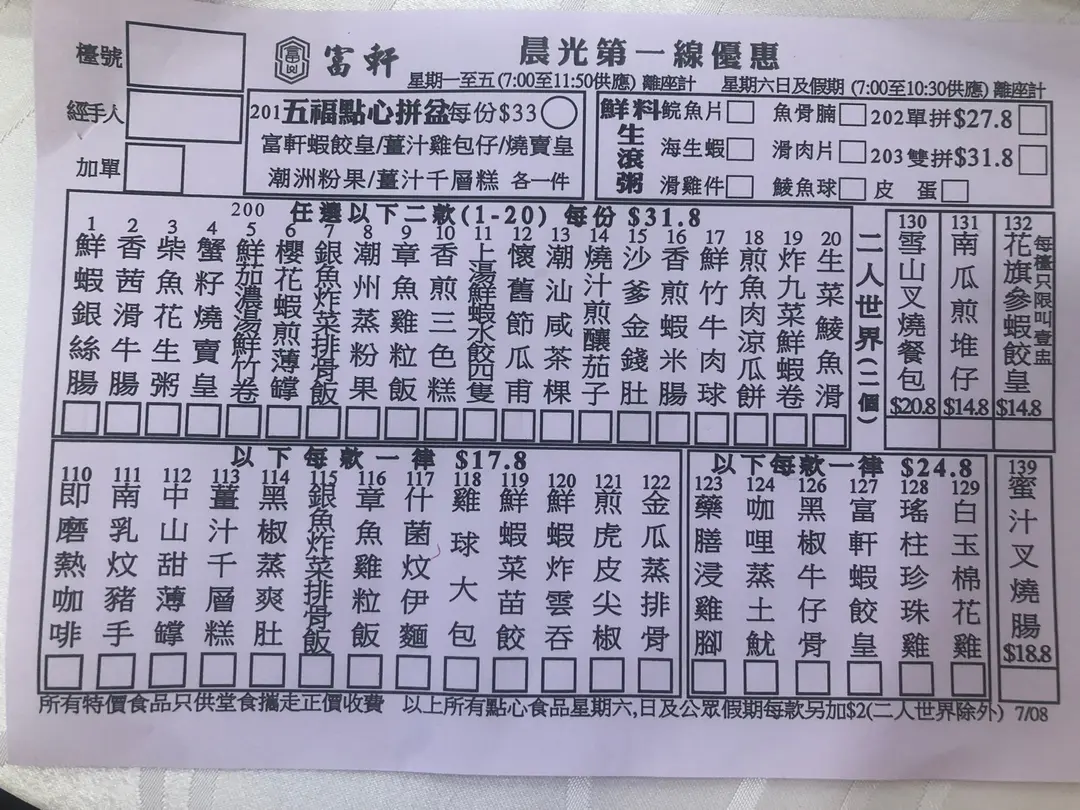 檯號
經手人
加單
富軒
晨光第一線優惠
星期一至五(7:00至11:50供應) 離座計 星期六日及假期 (7:00至10:30供應) 離座計
201五福點心拼盆每份$33
富軒蝦餃皇/薑汁雞包仔/燒賣皇
潮洲粉果/薑汁千層糕 各一件
鮮料生滾粥
鯇魚片 魚骨腩 202單拼$27.8
海生蝦 滑肉片 203雙拼$31.8
滑雞件 鯪魚球 皮蛋
200 任選以下二款(1-20) 每份 $31.8
1 鮮蝦銀絲腸
2 香茜滑牛腸
3 柴魚花生粥
4 蟹籽燒賣皇
5 鮮茄濃湯鮮竹卷
6 櫻花蝦煎薄罉
7 銀魚炸菜排骨飯
8 潮州蒸粉果
9 章魚雞粒飯
10 香煎三色糕
11 上湯鮮蝦水餃四隻
12 懷舊節瓜甫
13 潮汕咸茶棵
14 燒汁煎釀茄子
15 沙爹金錢肚
16 香煎蝦米腸
17 鮮竹牛肉球
18 煎魚肉涼瓜餅
19 炸九菜鮮蝦卷
20 生菜鯪魚滑
二人世界(二個)
130 雪山叉燒餐包 $20.8
131 南瓜煎堆仔 $14.8
132 花旗參蝦餃皇 $14.8
每檯只限叫壹盅
以下每款一律 $17.8
110 即磨熱咖啡
111 南乳炆豬手
112 中山甜薄罉
113 薑汁千層糕
114 黑椒蒸爽肚
115 銀魚炸菜排骨飯
116 章魚雞粒飯
117 什菌炆伊麵
118 雞球大包
119 鮮蝦菜苗餃
120 鮮蝦炸雲吞
121 煎虎皮尖椒
122 金瓜蒸排骨
以下每款一律 $24.8
123 藥膳浸雞腳
124 咖哩蒸土魷
126 黑椒牛仔骨
127 富軒蝦餃皇
128 瑤柱珍珠雞
129 白玉棉花雞
139 蜜汁叉燒腸 $18.8
所有特價食品只供堂食攜走正價收費 以上所有點心食品星期六,日及公眾假期每款另加$2(二人世界除外) 7/08